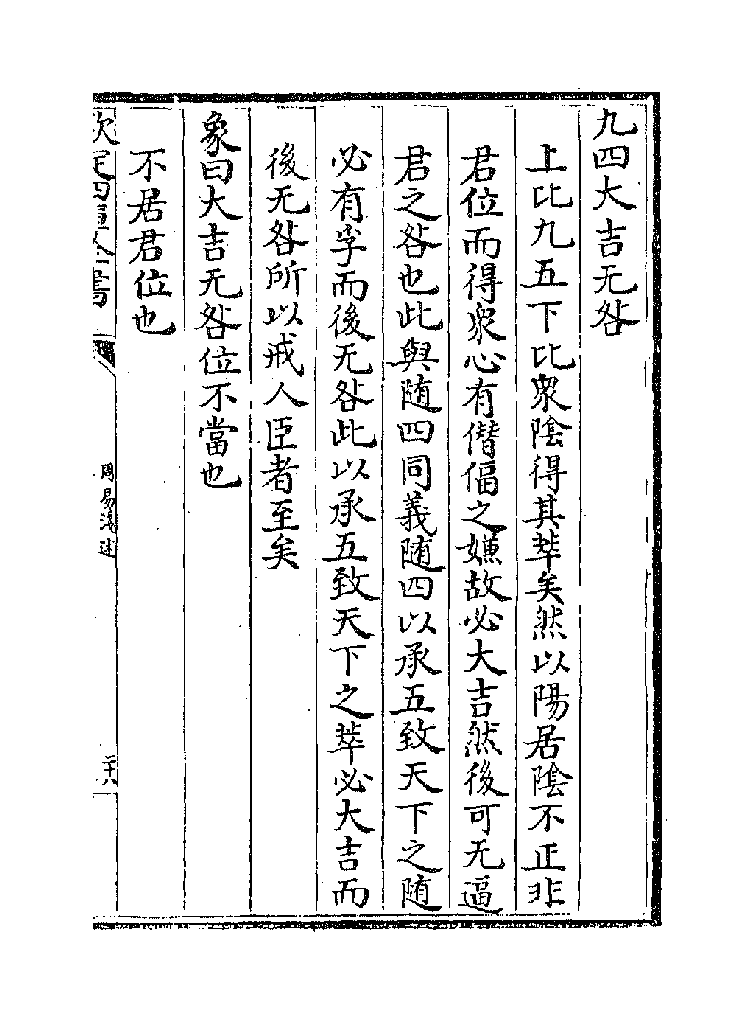 九四大吉无咎
上比九五下比衆陰得其萃矣然以陽居陰不正非
君位而得衆心有僭偪之嫌故必大吉然後可无逼
君之咎也此與随四同義随四以承五致天下之随
必有孚而後无咎此以承五致天下之萃必大吉而
後无咎所以戒人臣者至矣
象曰大吉无咎位不當也
不居君位也
欽定四庫全書
周易淺述
二十八